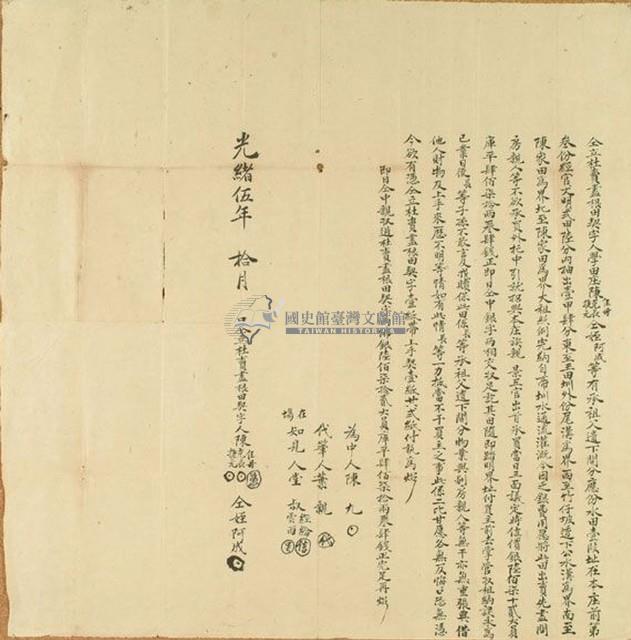 仝立杜賣盡根田契字人學田庄陳 仝姪阿成等有承祖父遺下鬮分應份水田壹段址在本庄前第
叁份經官丈明弍甲陸分內抽出壹甲肆分東至王田圳外份尾溝為界西至竹仔坡邊下公水溝為界南至
陳家田為界北至陳家田為界大租照例完納自帶圳水通流灌溉今因乏銀費用愿將此田出賣先盡問
房親人等不欲承買外托中引就招與本庄族親景三官出首承買當日三面議定時值價銀陸佰柒十弍大員
庫平肆佰柒拾兩零肆錢正即日仝中銀字兩相交收足訖其田隨即踏明界址付買主前去掌管收租納課永為
己業日後長等子孫不敢言及找贖保此田係長等承祖父遺下鬮分物業與別房親人等無干亦無重張典借
他人財物及上手來歷不明等情如有此情長等一力抵當不干買主之事此係二比甘愿各無反悔口恐無憑
今欲有憑仝立杜賣盡根田契字壹紙帶上手契壹紙共弍紙付執為炤
即日仝中親收過杜賣盡根田契字 佛銀陸佰柒拾貳大員庫平肆佰柒拾兩零肆錢正完足再炤
為中人陳九
代筆人葉親
在場知見人堂叔雲雨
光緒伍年 拾月 日立杜賣盡根田契字人陳 仝姪阿成
國史館臺灣文獻館
TAIWAN HISTORICA